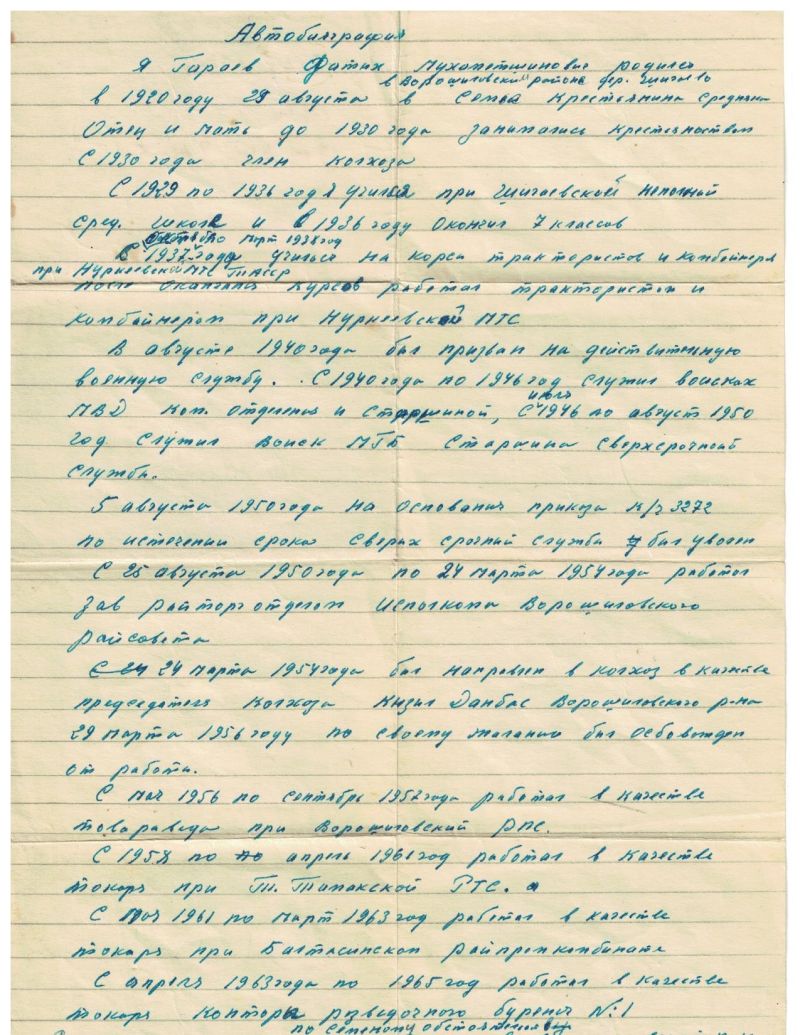 Автобиография
Я Гараев Фатих Мухаметшинович родился
в Ворошиловский района дер. Шигаево
в 1920 году 29 августа в семьа крестьянина средняка
Отец и мать до 1930 года занимались крестьянством
С 1930 года член колхоза
С 1929 по 1936 год я учился при Шигаевской неполной
сред. школе и в 1936 году окончил 7 классов
октябрь по март 1938 год
С 1937 года учился на корса трактористов и комбайнера
при Нуркеевской МТС ТАССР
после окончания курсов работал трактористом и
комбайнером при Нуркеевской МТС
В августе 1940 года был призван на действительную
военную службу. С 1940 года по 1946 год служил войсках
июль
МВД Ком. отделения и старшиной, С 1946 по август 1950
год служил войск МГБ старшина сверхсрочный
службы.
5 августа 1950 года на основания приказа в/ч 3272
по истечении срока сверх срочный службы я был уволен
С 25 августа 1950 года по 24 марта 1954 года работал
зав райторготделом исполкома Ворошиловского
райсовета
С 24 24 марта 1954 года был направлен в колхоз в качестве
председателя колхоза Кызыл Данбас Ворошиловского р-на
29 марта 1956 году по своему желании был освобожден
от работы.
С мая 1956 по сентябрь 1957 года работал в качестве
товараведа при Ворошиловский РПС.
С 1958 по по апрель 1961 год работал в качестве
токарь при Т. Тамакской РТС.
С мая 1961 по март 1963 год работал в качестве
токарь при Бавлинском райпромкомбината
С апреля 1963 года по 1965 год работал в качестве
токаря Конторы розведочного бурения №1
по семейному обстоятельствам